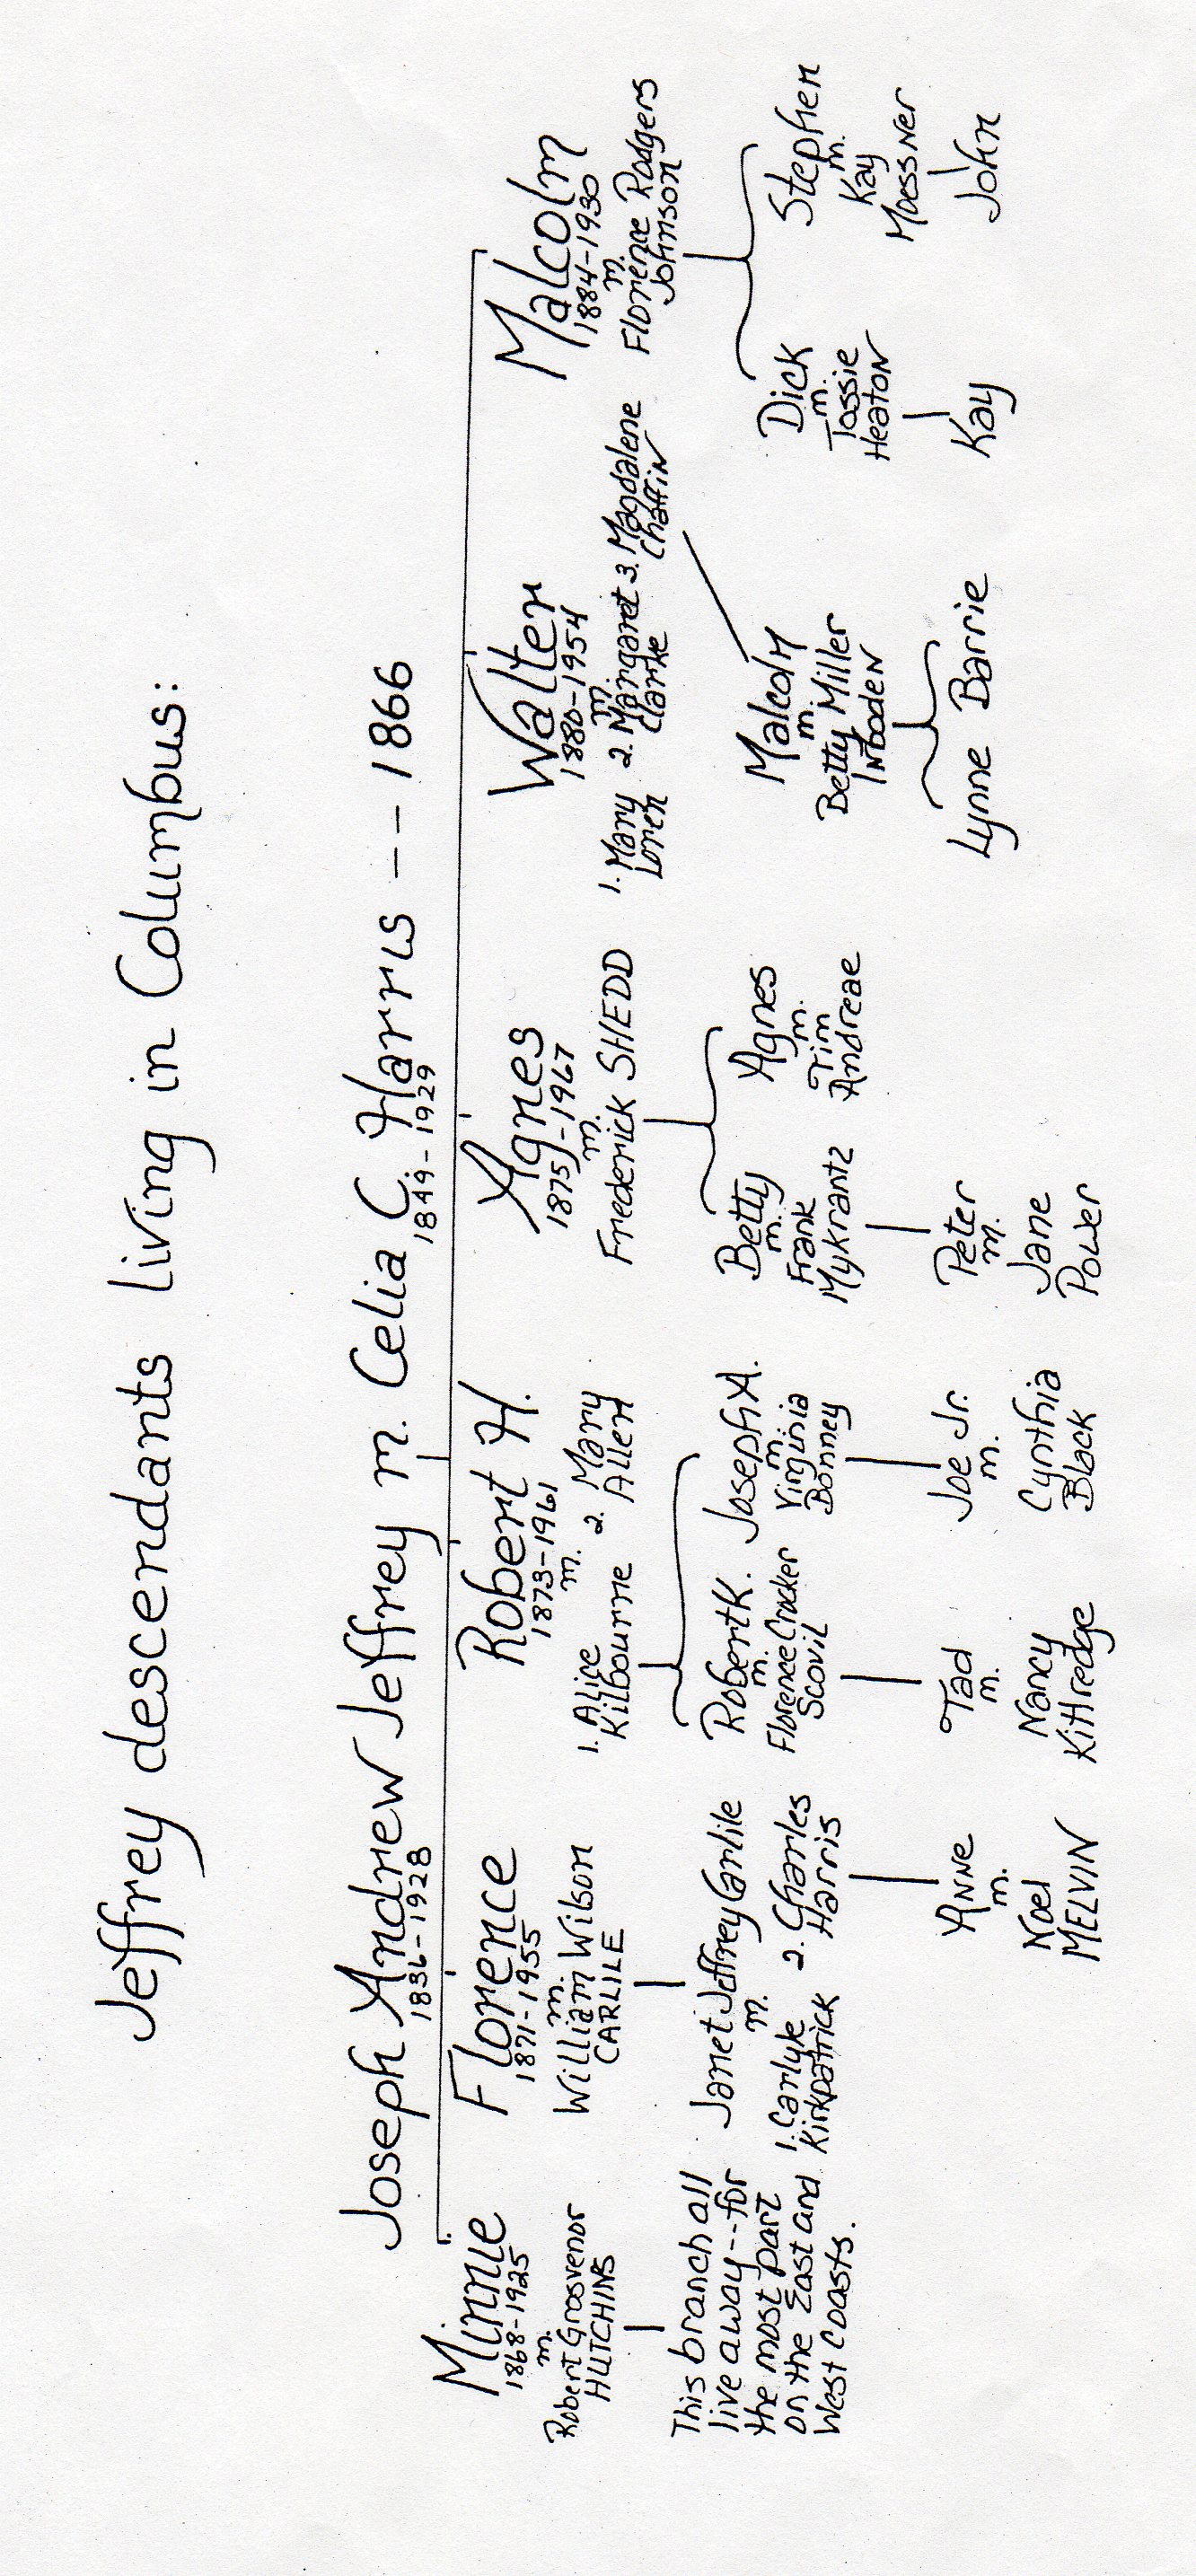 Jeffrey descendants living in Columbus:
Joseph Andrew Jeffrey m. Celia C. Harris -- 1866
1836-1928
1849-1929
Minnie
1868-1925
m.
Robert Grosvenor
HUTCHINS
This branch all
live away--for
the most part
on the East and
West Coasts.
Florence
1871-1955
m.
William Wilson
CARLILE
Janet Jeffrey Carlile
m.
1. Carlyle
Kirkpatrick
2. Charles
Harris
Anne
m.
Noel
MELVIN
Robert H.
1873-1961
m.
1. Alice
Kilbourne
2. Mary
Allen
Robert K.
m.
Florence Crocker
Scovil
Tad
m.
Nancy
Kittredge
Joseph A.
m.
Virginia
Bonney
Joe Jr.
m.
Cynthia
Black
Agnes
1875-1967
m.
Frederick SHEDD
Betty
m.
Frank
Mykrantz
Peter
m.
Jane
Power
Agnes
m.
Tim
Andreae
Walter
1880-1954
m.
1. Mary
Loren
2. Margaret
Clarke
3. Magdalene
Chaffin
Malcolm
m.
Betty Miller
Inboden
Lynne Barrie
Malcolm
1884-1930
m.
Florence Rodgers
Johnson
Dick
m.
Tossie
Heaton
Kay
Stephen
m.
Kay
Moessner
John